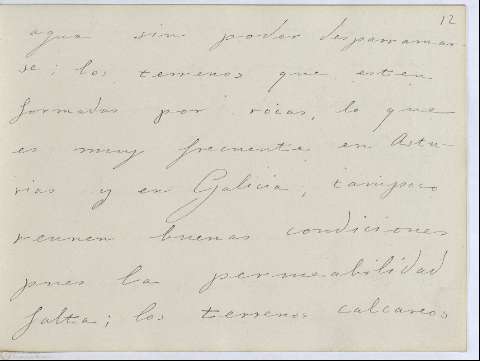 12
agua sin poder desparramar-
se; los terrenos que esten
formados por rocas, lo que
es muy frecuente en Astu-
rias y en Galicia, tampoco
reunen buenas condiciones
pues la permeabilidad
falta; los terrenos calcareos